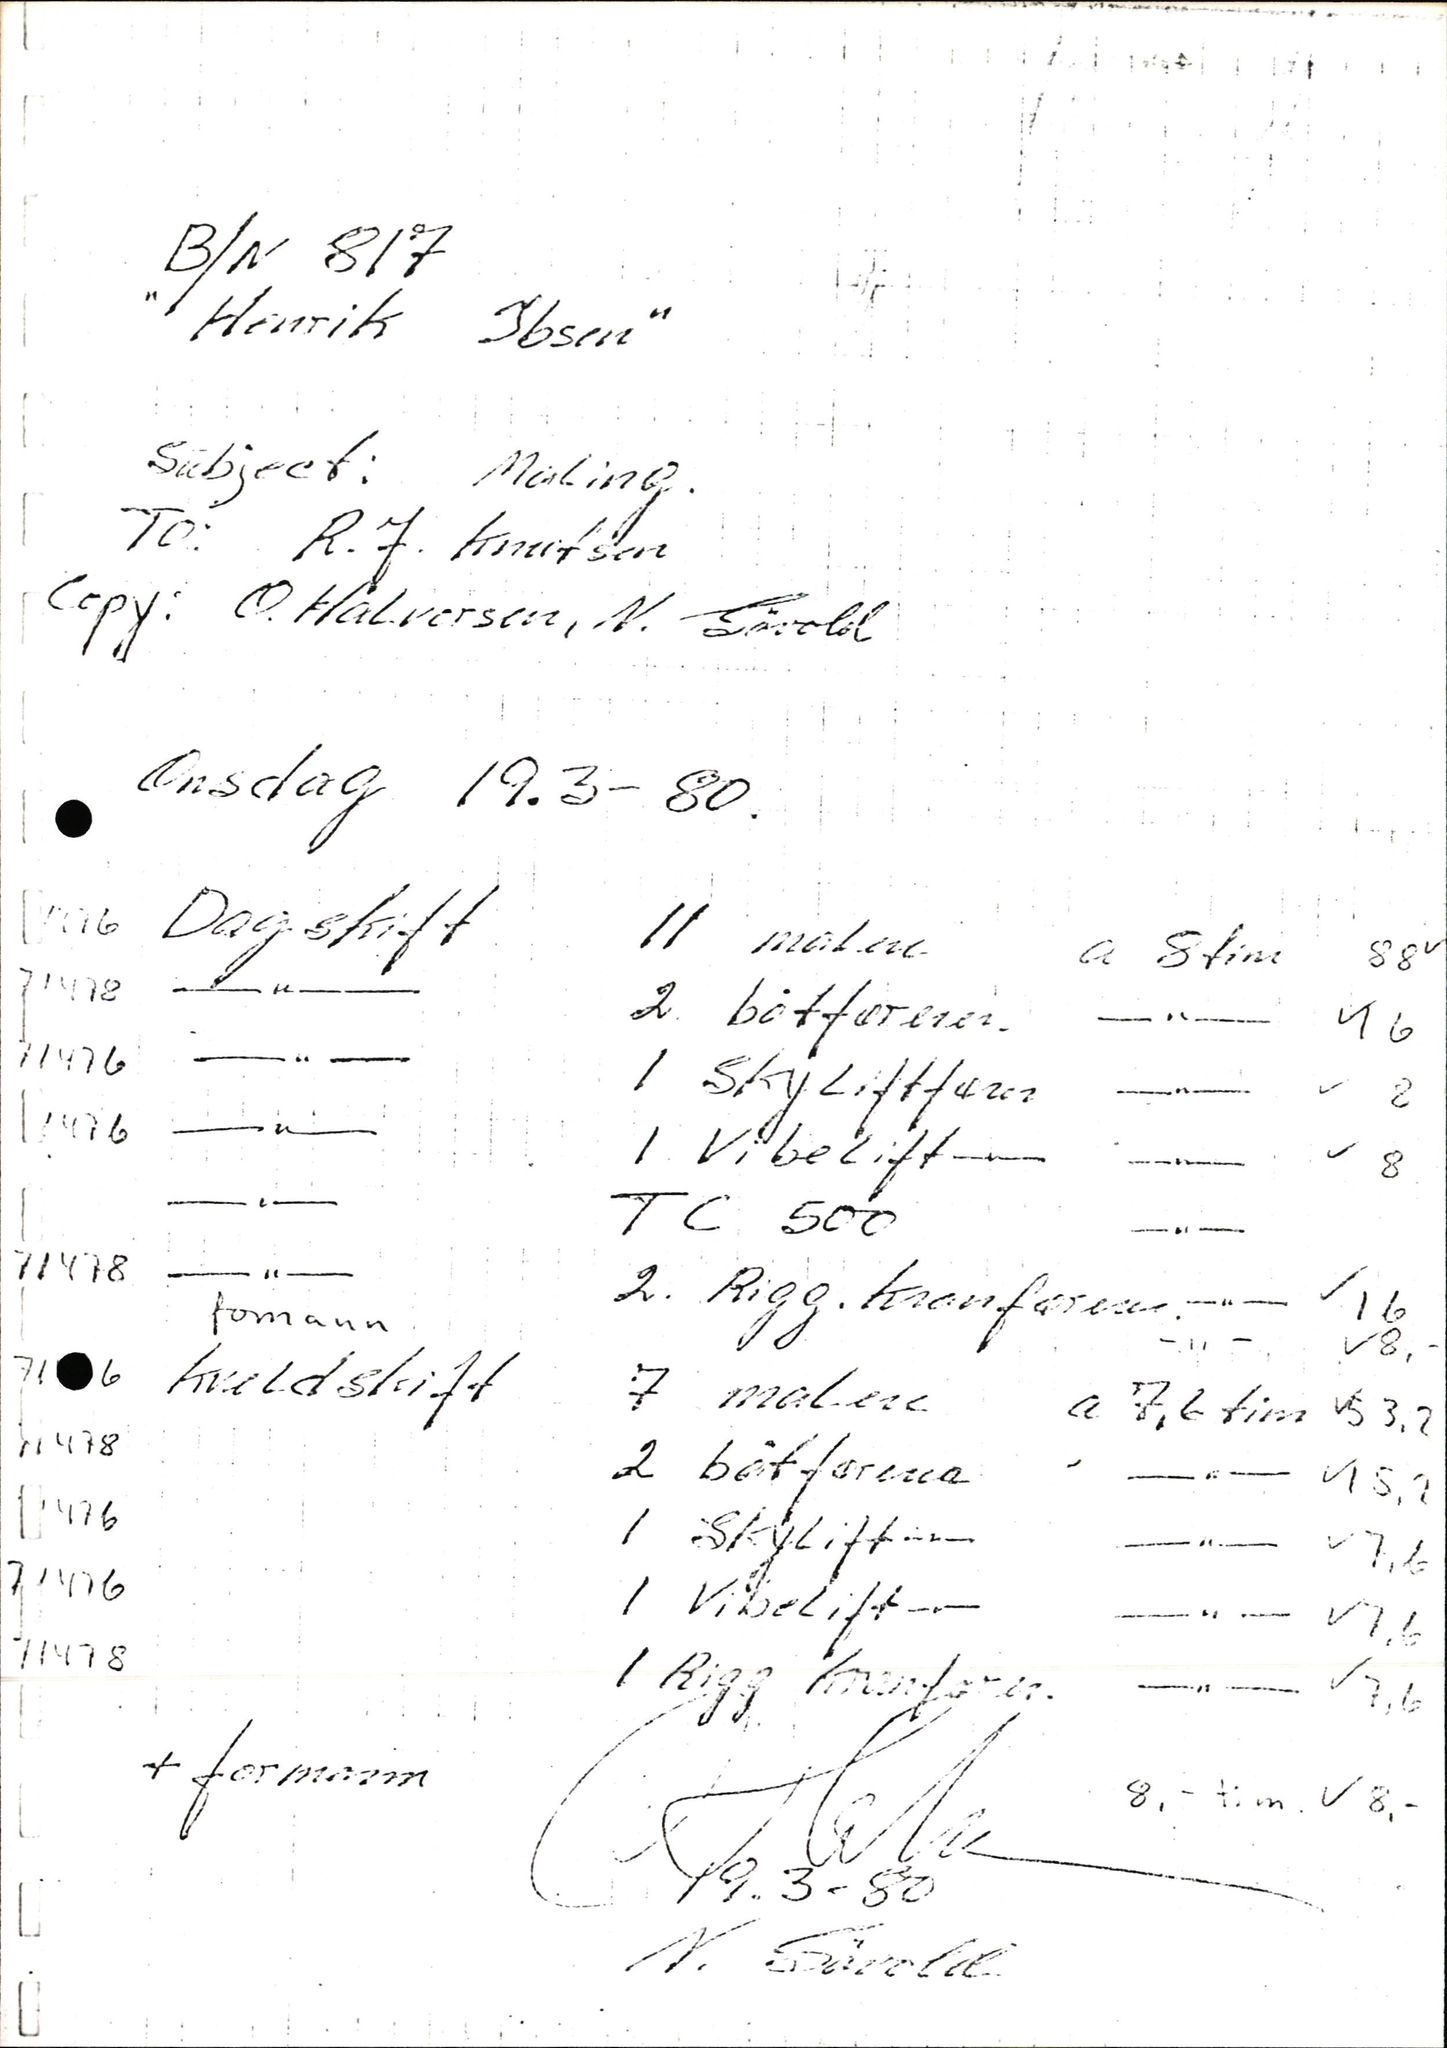 B/N 817
"Henrik Ibsen"
Subject: Maling.
To: R. J. Knutsen
Copy: O. Halversen, N. Sövold
Onsdag 19.3-80.
1476 Dagskift 11 malere a 8 tim 88 ✓
71478 —"— 2 båtförere. —"— ✓16
71476 —"— 1 Skyliftförer —"— ✓ 8
71476 —"— 1 Vibelift —"— —"— ✓ 8
—"— TC 500 —"—
71478 —"— 2. Rigg. kranförere. —"— ✓16
fomann —"— ✓8,-
71476 kveldskift 7 malere a 7,6 tim ✓53,2
71478 2 båtförere —"— ✓15,2
71476 1 Skylift —"— —"— ✓7,6
71476 1 Vibelift —"— —"— ✓7,6
71478 1 Rigg kranförer. —"— ✓7,6
+ formann 8,- tim. ✓ 8,-
19.3-80
N. Sövold